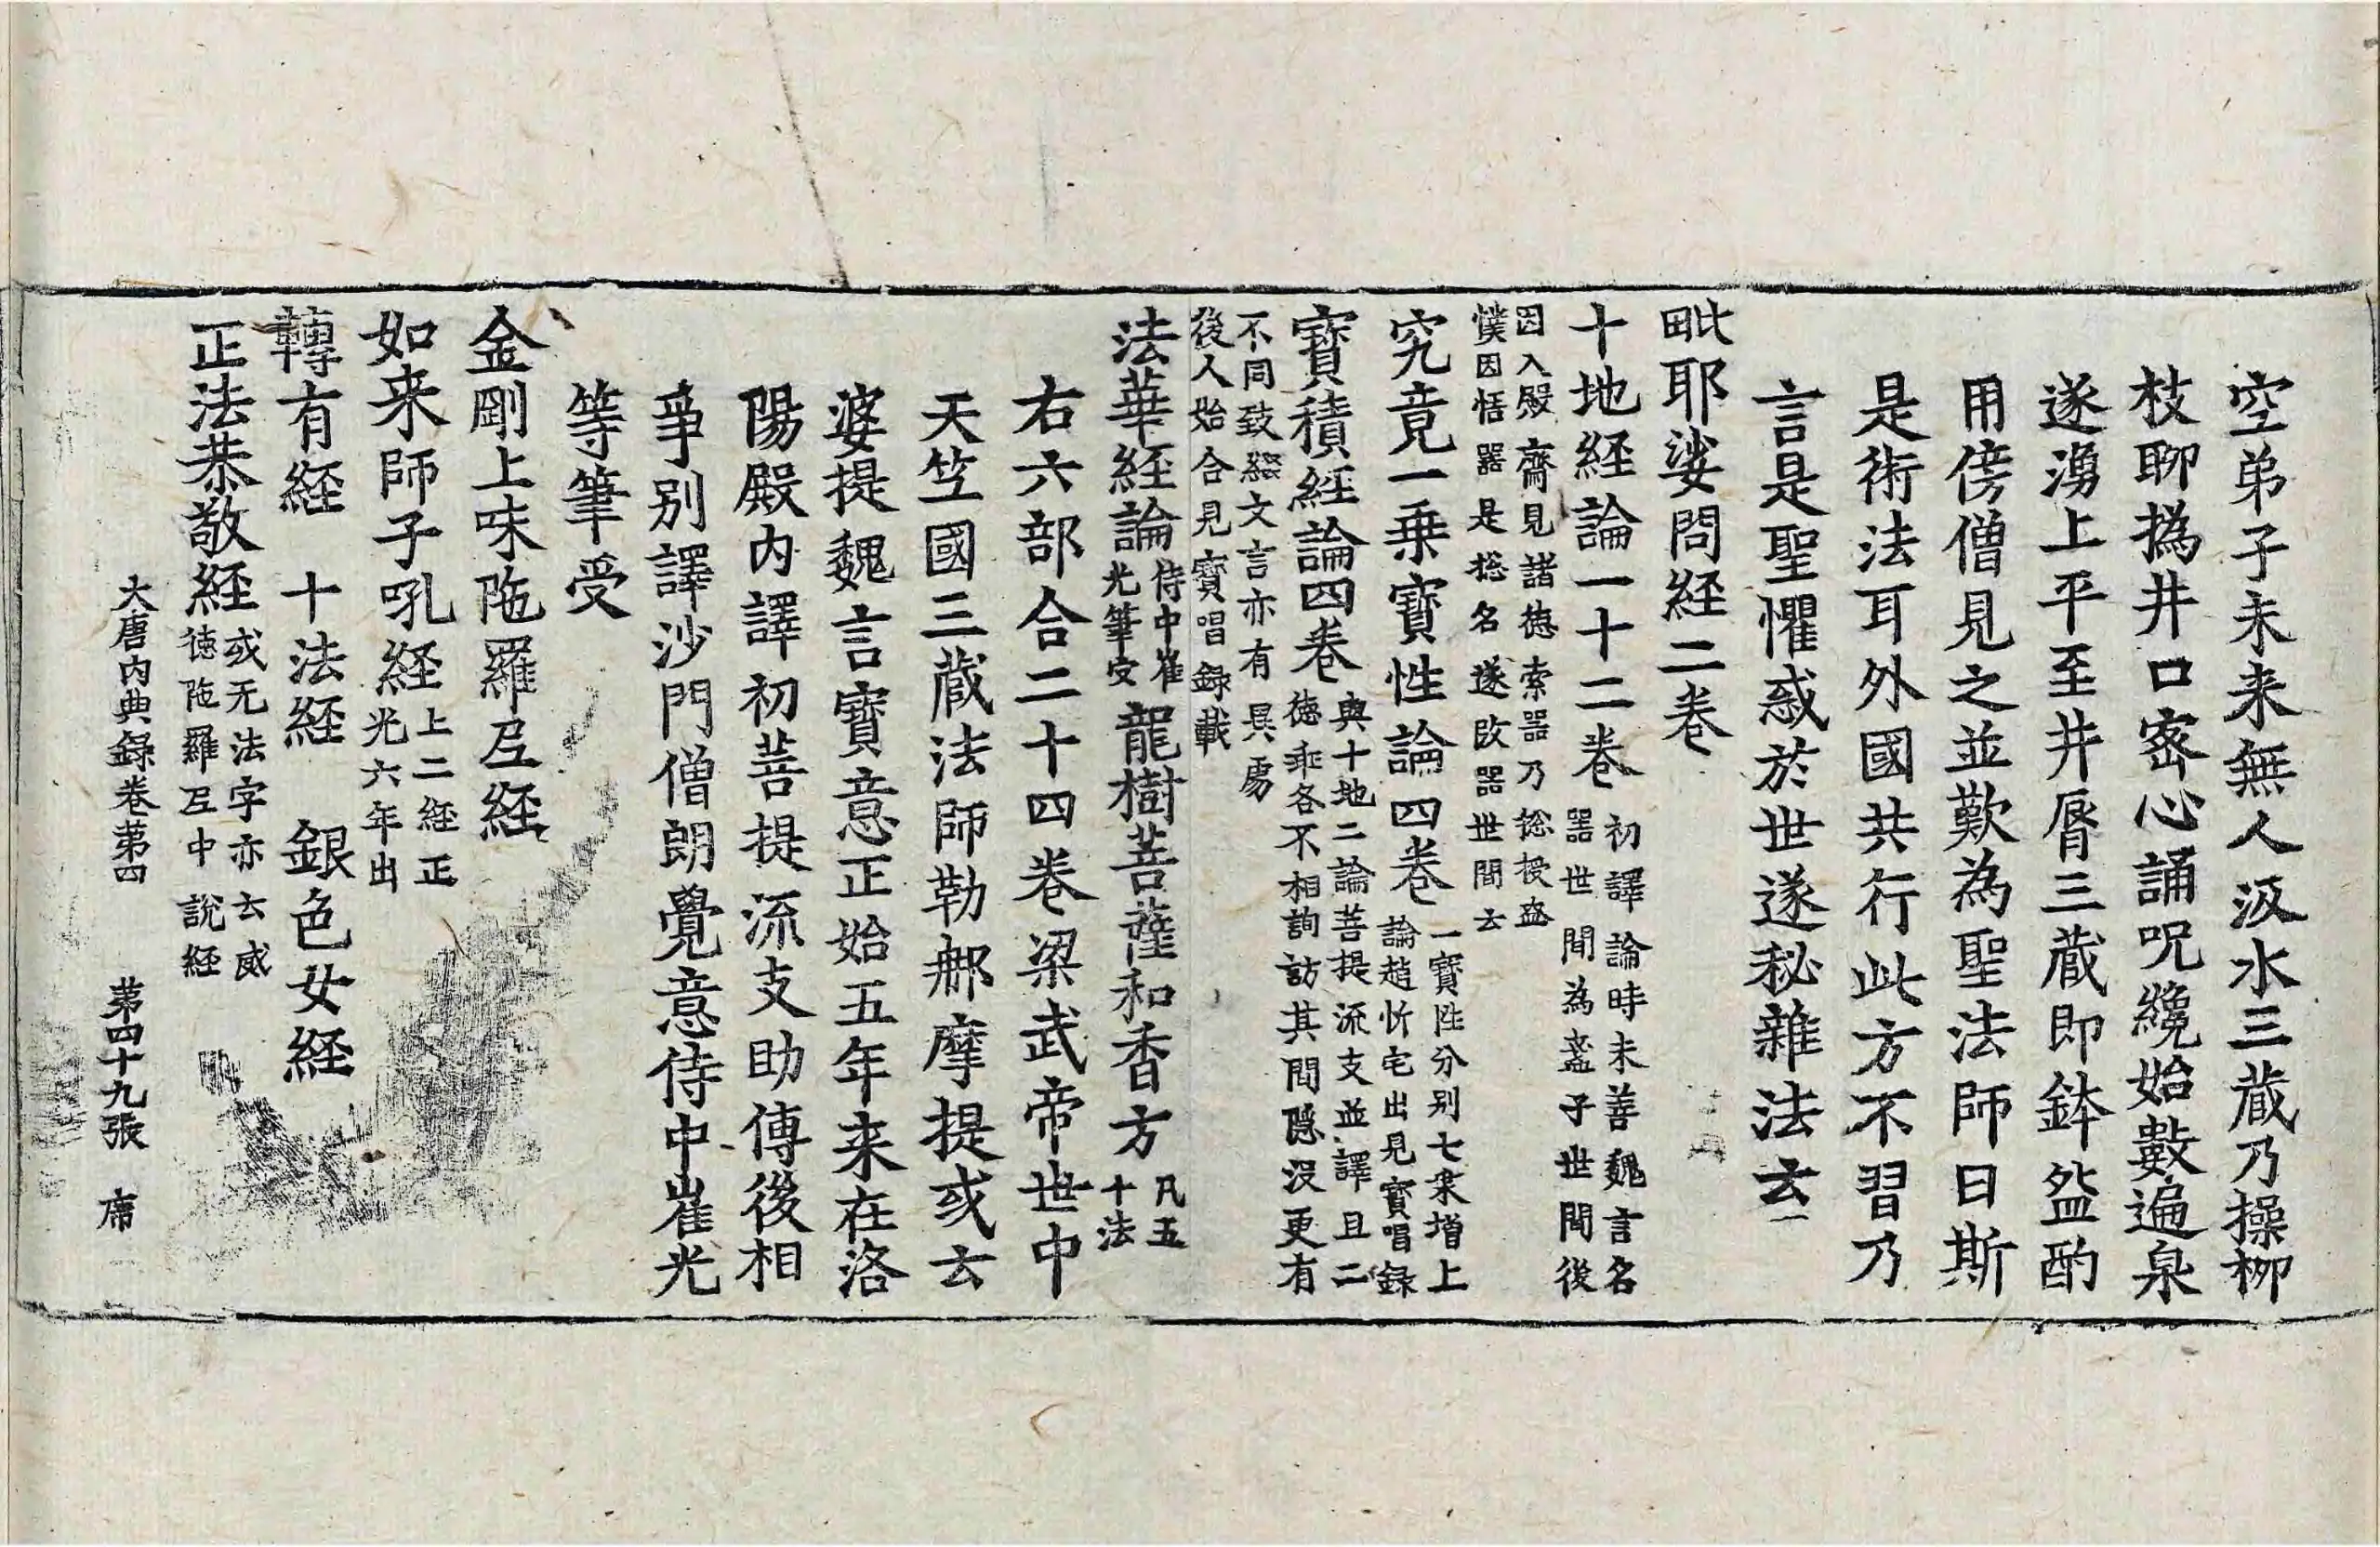 空弟子未来無人汲水三蔵乃操柳
枝聊撝井口密心誦呪纔始數遍泉
遂湧上平至井脣三蔵即鉢盆酌
用傍僧見之並歎為聖法師曰斯
是術法耳外國共行此方不習乃
言是聖懼惑於世遂秘雜法云
毗耶娑問経二卷
十地経論一十二卷初譯論時未善魏言名
器世間為盞子世間後
因入殿齋見諸徳索器乃総授盔
僕因悟器是捴名遂改器世間云
究竟一乗寶性論四卷一寶性分別七乗增上
論趙忻宅出見寶唱録
寶積経論四卷與十地二論菩提流支並譯且二
徳乖各不相詢訪其間隱没更有
不同致綴文言亦有異處
後人始合見寶唱録載
法華経論侍中崔
光筆受龍樹菩薩和香方凡五
十法
右六部合二十四卷梁武帝世中
天竺國三蔵法師勒𨙻摩提或云
婆提魏言寶意正始五年来在洛
陽殿内譯初菩提流支助傳後相
爭別譯沙門僧朗覺意侍中崔光
等筆受
金剛上味陁羅尼経
如来師子吼経上二経正
光六年出
轉有経 十法経 銀色女経
正法恭敬経或无法字亦云威
徳陁羅尼中說経
大唐内典録卷苐四 苐四十九張 席